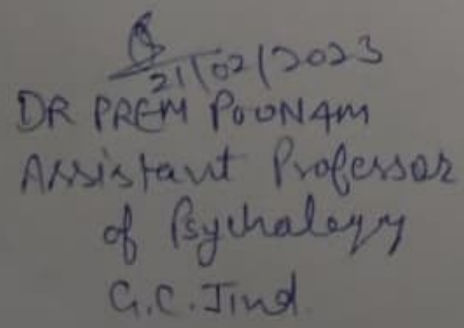 21/02/2023
DR PREM POONAM
Assistant Professor
of Psychology
G.C. Jind.